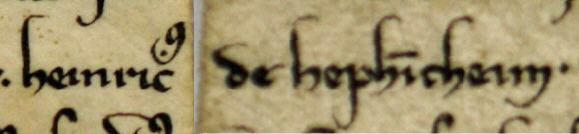 . heinricꝯ de hephīcheim.